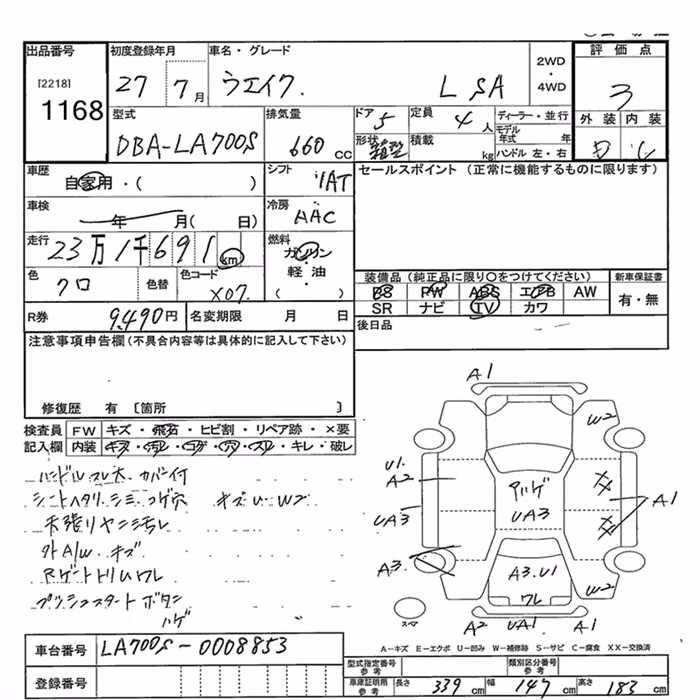 出品番号 初度登録年月 車名・グレード 2WD・4WD 評価点
[2218]
1168
27 7月 ウエイク. L SA 3
外装 内装
型式 排気量 ドア 5 定員 4人 ディーラー・並行
DBA-LA700S 660cc 形状 箱型 積載 kg モデル年式 年
ハンドル 左・右
車歴 自家用・( ) シフト IAT セールスポイント (正常に機能するものに限ります)
車検 年 月( 日) 冷房 AAC
走行 23万1千691km 燃料 ガソリン・軽油・( )
色 クロ 色替 色コード X07.
装備品(純正品に限り○をつけてください) 新車保証書
PS PW ABS エアB AW 有・無
SR ナビ TV カワ
R券 9,490円 名変期限 月 日 後日品
注意事項申告欄(不具合内容等は具体的に記入して下さい)
修復歴 有 〔箇所 〕
検査員記入欄 FW キズ・飛石・ヒビ割・リペア跡・×要
内装 キズ・汚レ・コゲ・穴・スレ・キレ・破レ
ハンドルスレ大.カバー付
シートヘタリ.シミ.コゲ穴 キズU.W2
天張リヤニ汚レ
外A/W キズ
Rゲートトリムワレ
プッシュスタートボタン
ハゲ
A1
W2
U1.
A2
アハゲ
UA3
XX
A1
UA3
XX
A3.
A3.U1
ワレ
W2
スペア
A2 UA1 A1
A-キズ E-エクボ U-凹み W-補修跡 S-サビ C-腐食 XX-交換済
車台番号 LA700S-0008853
登録番号
型式指定番号 参考 類別区分番号 参考
車庫証明用 参考 長さ 339cm 幅 147cm 高さ 183cm